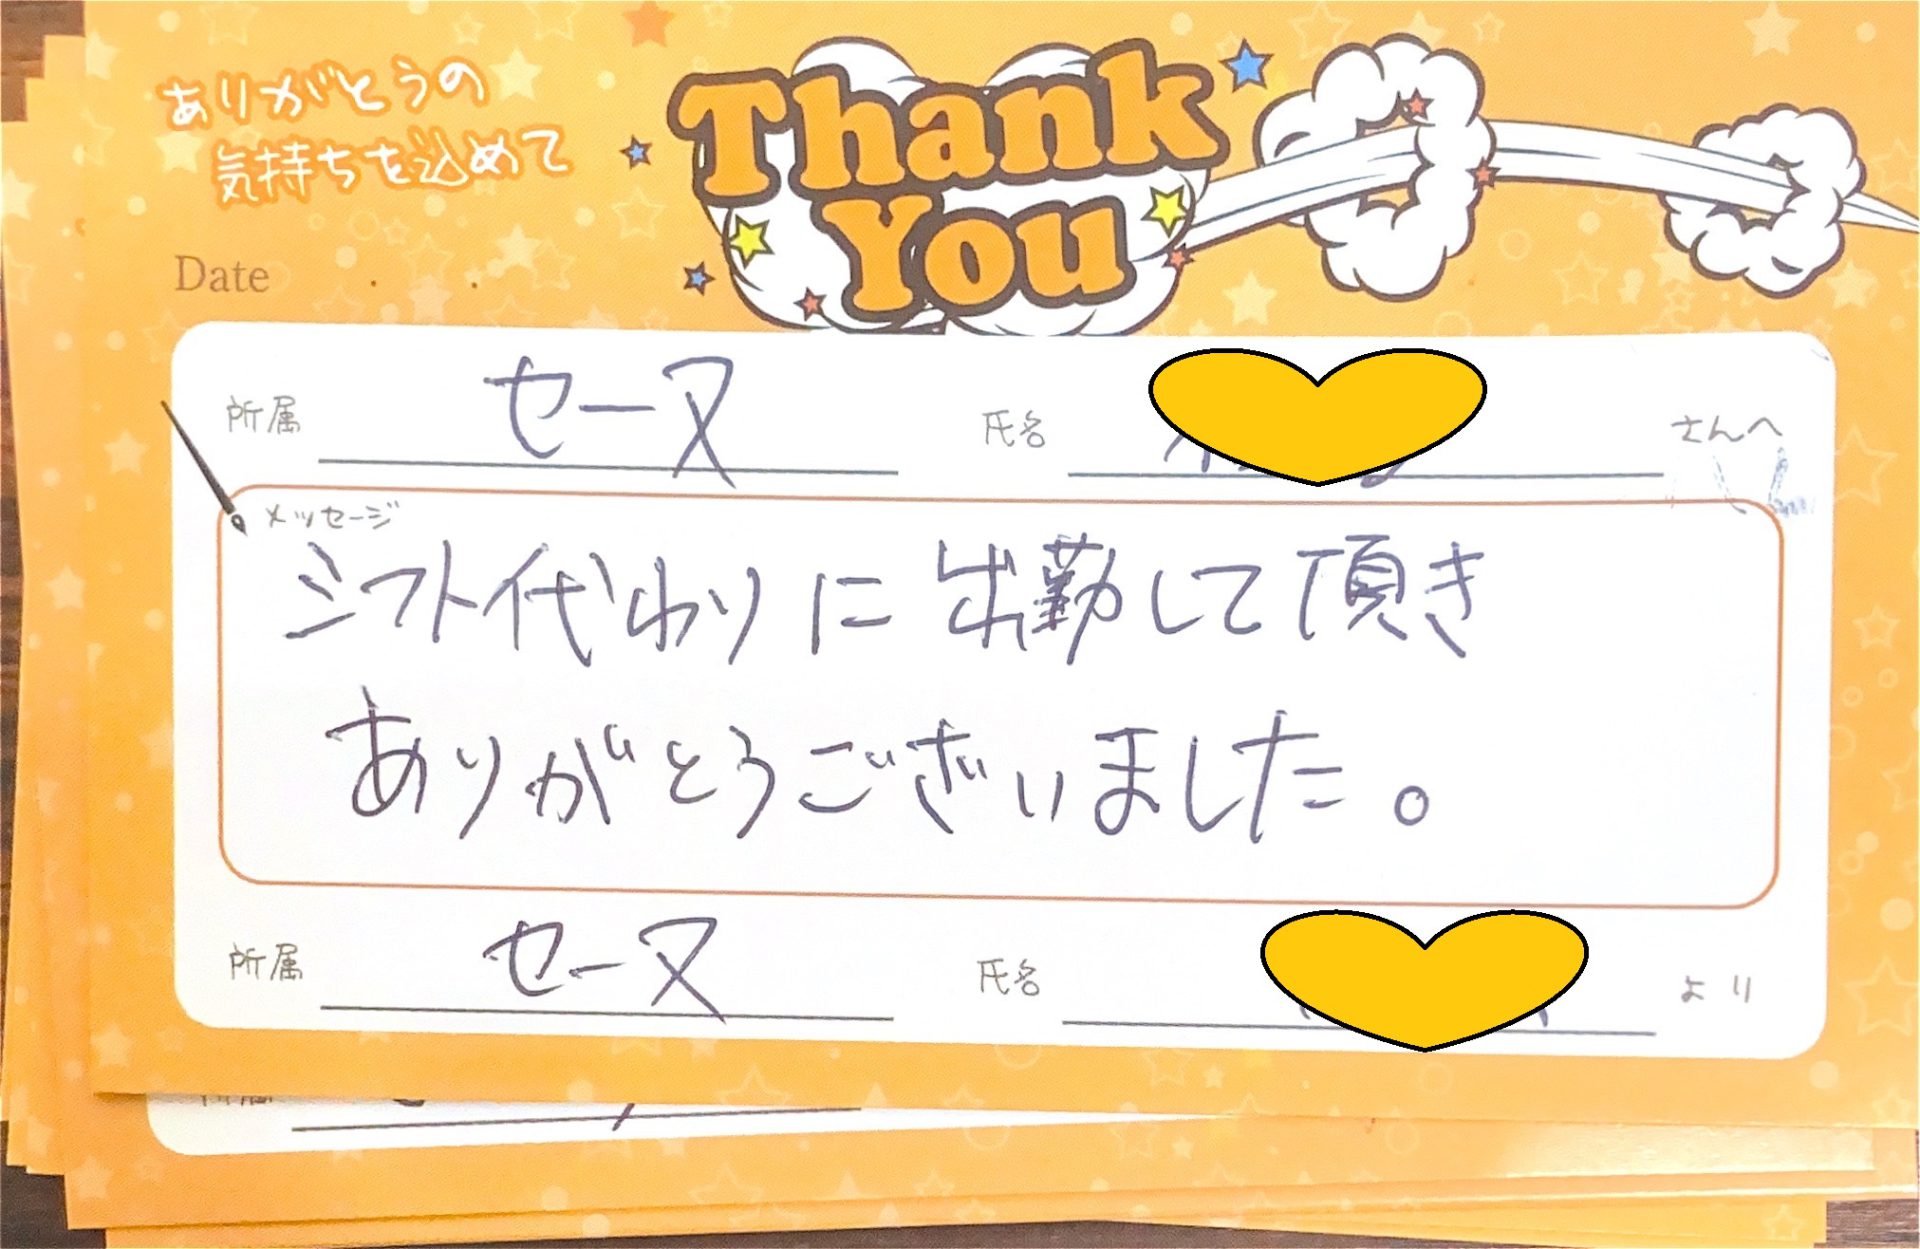 ありがとうの
気持ちを込めて
Thank
You
Date . .
所属 セーヌ 氏名 さんへ
メッセージ
シフト代わりに出勤して頂き
ありがとうございました。
所属 セーヌ 氏名 より